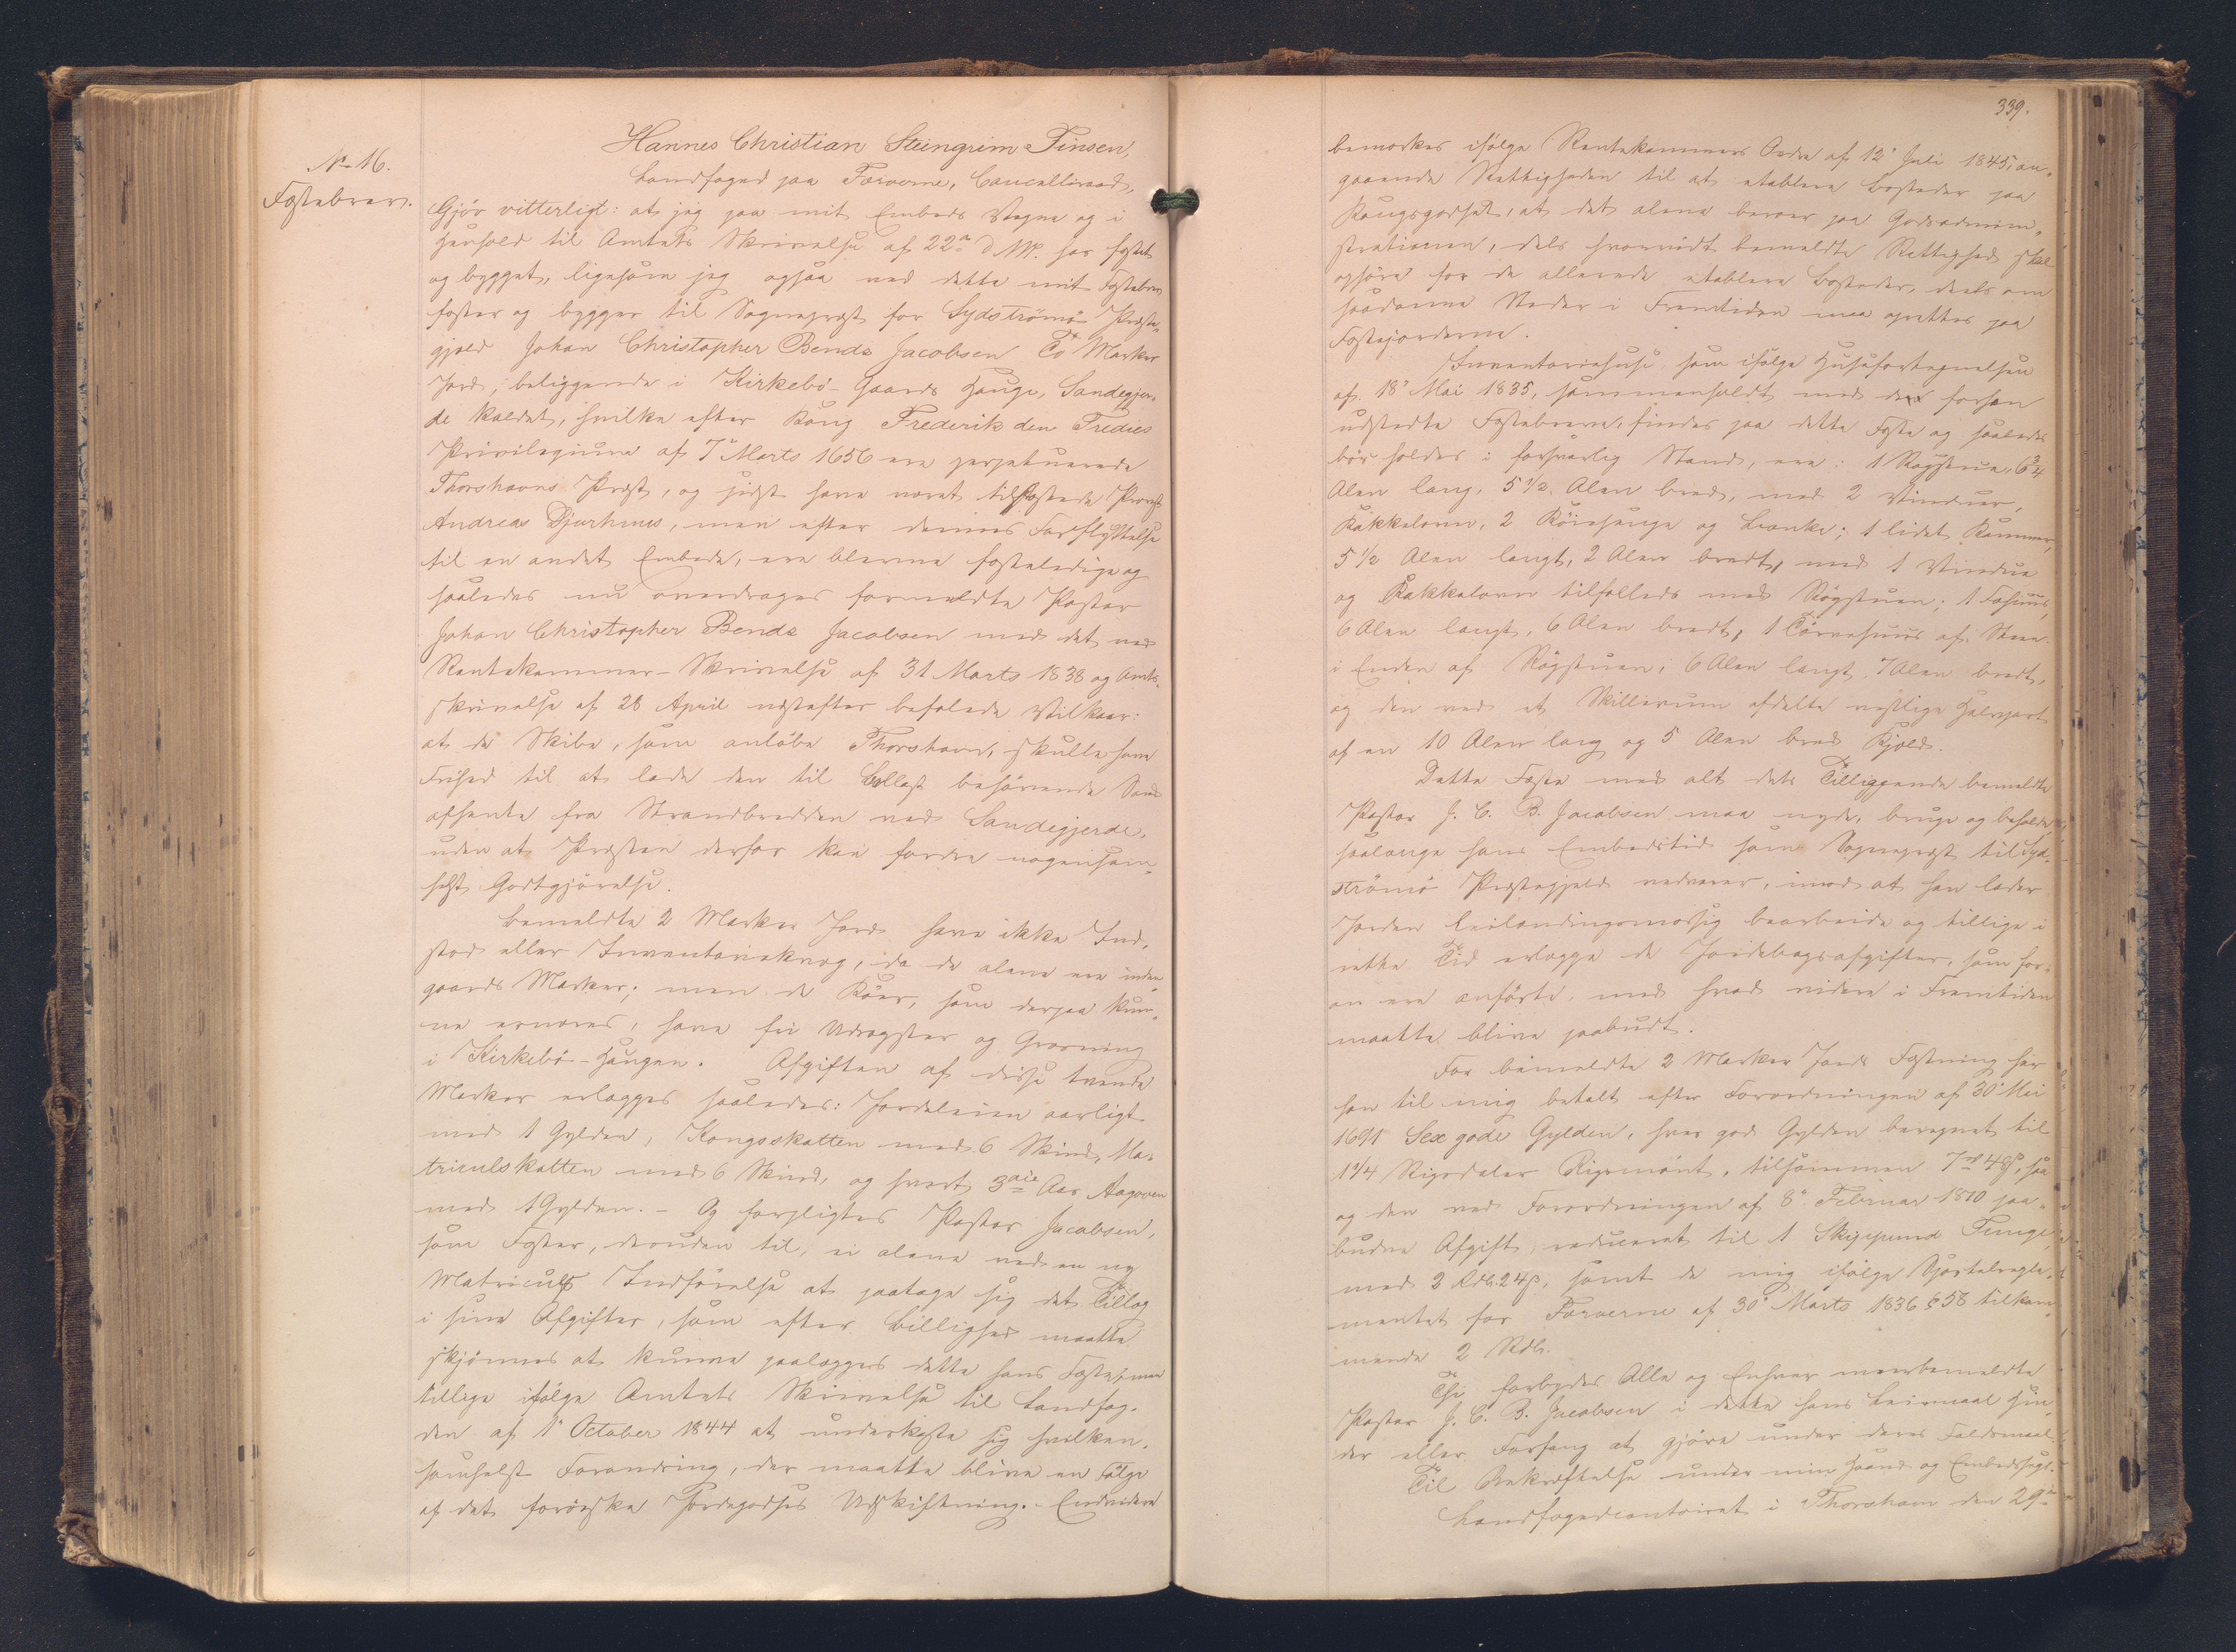 No 16.
Fæstebrev.
Hannes Christian Steingrim Finsen,
Landfoged paa Færøerne, Cancelliraad,
Gjør vitterligt: at jeg paa mit Embeds Vegne og i
Henhold til Amtets Skrivelse af 22de d. M. har fæstet
og bygget, ligesom jeg ogsaa ved dette mit Fæstebrev
fæster og bygger til Sognepræst for Sydstrømø Præste-
gjeld Johan Christopher Benda Jacobsen To Marker
Jord, beliggende i Kirkebø-Gaards Hauge, Sandegjer-
de kaldet, hvilke efter Kong Frederik den Tredies
Privilegium af 7de Marts 1656 ere perpetuerede
Thorshavns Præst, og sidst have været tilfæstede Provst
Andreas Djurhuus, men efter dennes Forflyttelse
til en andet Embede, ere blevne fæsteledige og
saaledes nu overdrages formeldte Pastor
Johan Christopher Benda Jacobsen med det ved
Rentekammer-Skrivelse af 31 Marts 1838 og Amts-
skrivelse af 28 April næstefter befalede Vilkaar:
at de Skibe, som anløbe Thorshavn, skulle have
Frihed til at lade den til Ballast behøvende Sand
afhente fra Strandbredden ved Sandegjerde,
uden at Præsten derfor kan fordre nogensom-
helst Godtgjørelse.
Bemeldte 2 Marker Jord have ikke Ind-
stød eller Inventariekvæg, da de alene ere inden-
gaards Marker; men de Køer, som derpaa kun-
ne ernæres, have fri Udregster og Græsning
i Kirkebø-Haugen. Afgiften af disse tvende
Marker erlægges saaledes: Jordeleien aarligt
med 1 Gylden, Kongsskatten med 6 Skind, Ma-
triculskatten med 6 Skind, og hvert 3die Aar Aagoven
med 1 Gylden. - Og forpligtes Pastor Jacobsen,
som Fæster, desuden til, ei alene ved en ny
Matriculs Indførelse at paatage sig det Tillæg
i sine Afgifter, som efter Billighed maatte
skjønnes at kunne paalægges dette hans Fæste, men
tillige ifølge Amtets Skrivelse til Landfog-
den af 1 October 1844 at underkaste sig hvilken-
somhelst Forandring, der maatte blive en Følge
af det færøeske Jordegodses Udskiftning. - Endvidere
339.
bemærkes ifølge Rentekammers Ordre af 12te Juli 1845, an-
gaaende Rettigheden til at etablere Bosteder paa
Kongsgodset, at det alene beroer paa Godsadmini-
strationen, dels hvorvidt bemeldte Rettighed skal
ophøre for de allerede etablere Bosteder, deels om
saadanne Steder i Fremtiden maa oprettes paa
Fæstejorderne.
Inventariehuse som ifølge Husefortegnelsen
af 18de Mai 1835, sammenholdt med den forhen
udstedte Fæstebreve, findes paa dette Fæste og saaledes
bør holdes i forsvarlig Stand, ere: 1 Røgstue, 6 3/4
Alen lang, 5 1/2 Alen bred, med 2 Vinduer,
Kakkelovn, 2 Køiesenge og Bænke; 1 lidet Kammer,
5 1/2 Alen langt, 2 Alen bredt, med 1 Vindue
og Kakkelovn tilfælleds med Røgstuen; 1 Fæhuus,
6 Alen langt, 6 Alen bredt, 1 Tørvehuus af Steen
i Enden af Røgstuen, 6 Alen langt, 7 Alen bredt,
og den ved et Skillerum afdelte vestlige Halvpart
af en 10 Alen lang og 5 Alen bred Kjeld.
Dette Fæste med alt dets Tilliggende bemeldte
Pastor J. C. B. Jacobsen maa nyde, bruge og beholde,
saalænge hans Embedstid som Sognepræst til Syd-
strømø Præstegjeld vedvarer, imod at han lader
Jorden leilændingsmæssig bearbeide og tillige i
rette Tid erlægge de Jordebogsafgifter, som for-
an ere anførte, med hvad videre i Fremtiden
maatte blive paabudt.
For bemeldte 2 Marker Jords Fæstning har
han til mig betalt efter Forordningen af 30te Mai
1691 Sex gode Gylden, hver god Gylden beregnet til
1 1/4 Rigsdaler Rigsmønt, tilsammen 7rd 48ß, saa
og den ved Forordningen af 8de Februar 1810 paa-
budne Afgift, reduceret til 1 Skippund Tunge
med 2 Rdlr. 24ß, samt de mig ifølge Sportelregle-
mentet for Færøerne af 30te Marts 1836 § 58 tilkom-
mende 2 Rdlr.
Thi forbydes Alle og Enhver meerbemeldte
Pastor J. C. B. Jacobsen i dette hans Leiemaal Hin-
der eller Forfang at gjøre under deres Faldsmaal.
Til Bekræftelse under min Haand og Embedssegl.
Landfogedcontoiret i Thorshavn den 29de